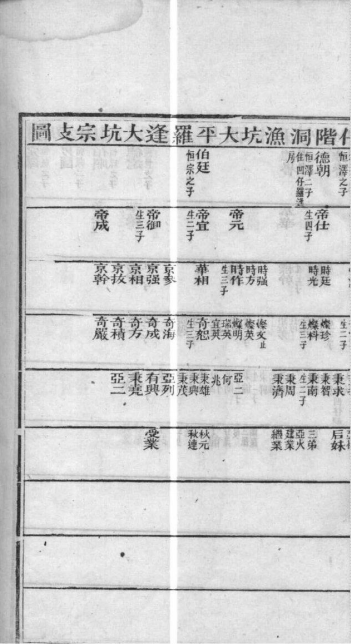 仔階洞漁坑大平羅逢大坑宗支圖
恒澤之子
德朝
恒澤二子
住凹仔羅逢
房
伯廷
恒宗之子
帝仕
生四子
帝元
帝宜
生二子
帝御
生三子
帝成
時廷
時光
時强
時方
時作
生三子
華相
京參
京强
京相
京技
京幹
燦珍
燦科
生三子
燦文止
燦英
燦明
瑞英
宜英
奇恕
生三子
奇海
奇成
奇方
奇積
奇嚴
秉求
秉智
秉南
生二子
秉周
秉濟
亞二
何
兆
秉雄
秉興
秉茂
亞列
有興
秉堯
亞二
后妹
三弟
亞火
建業
繼業
秋元
秋連
受業